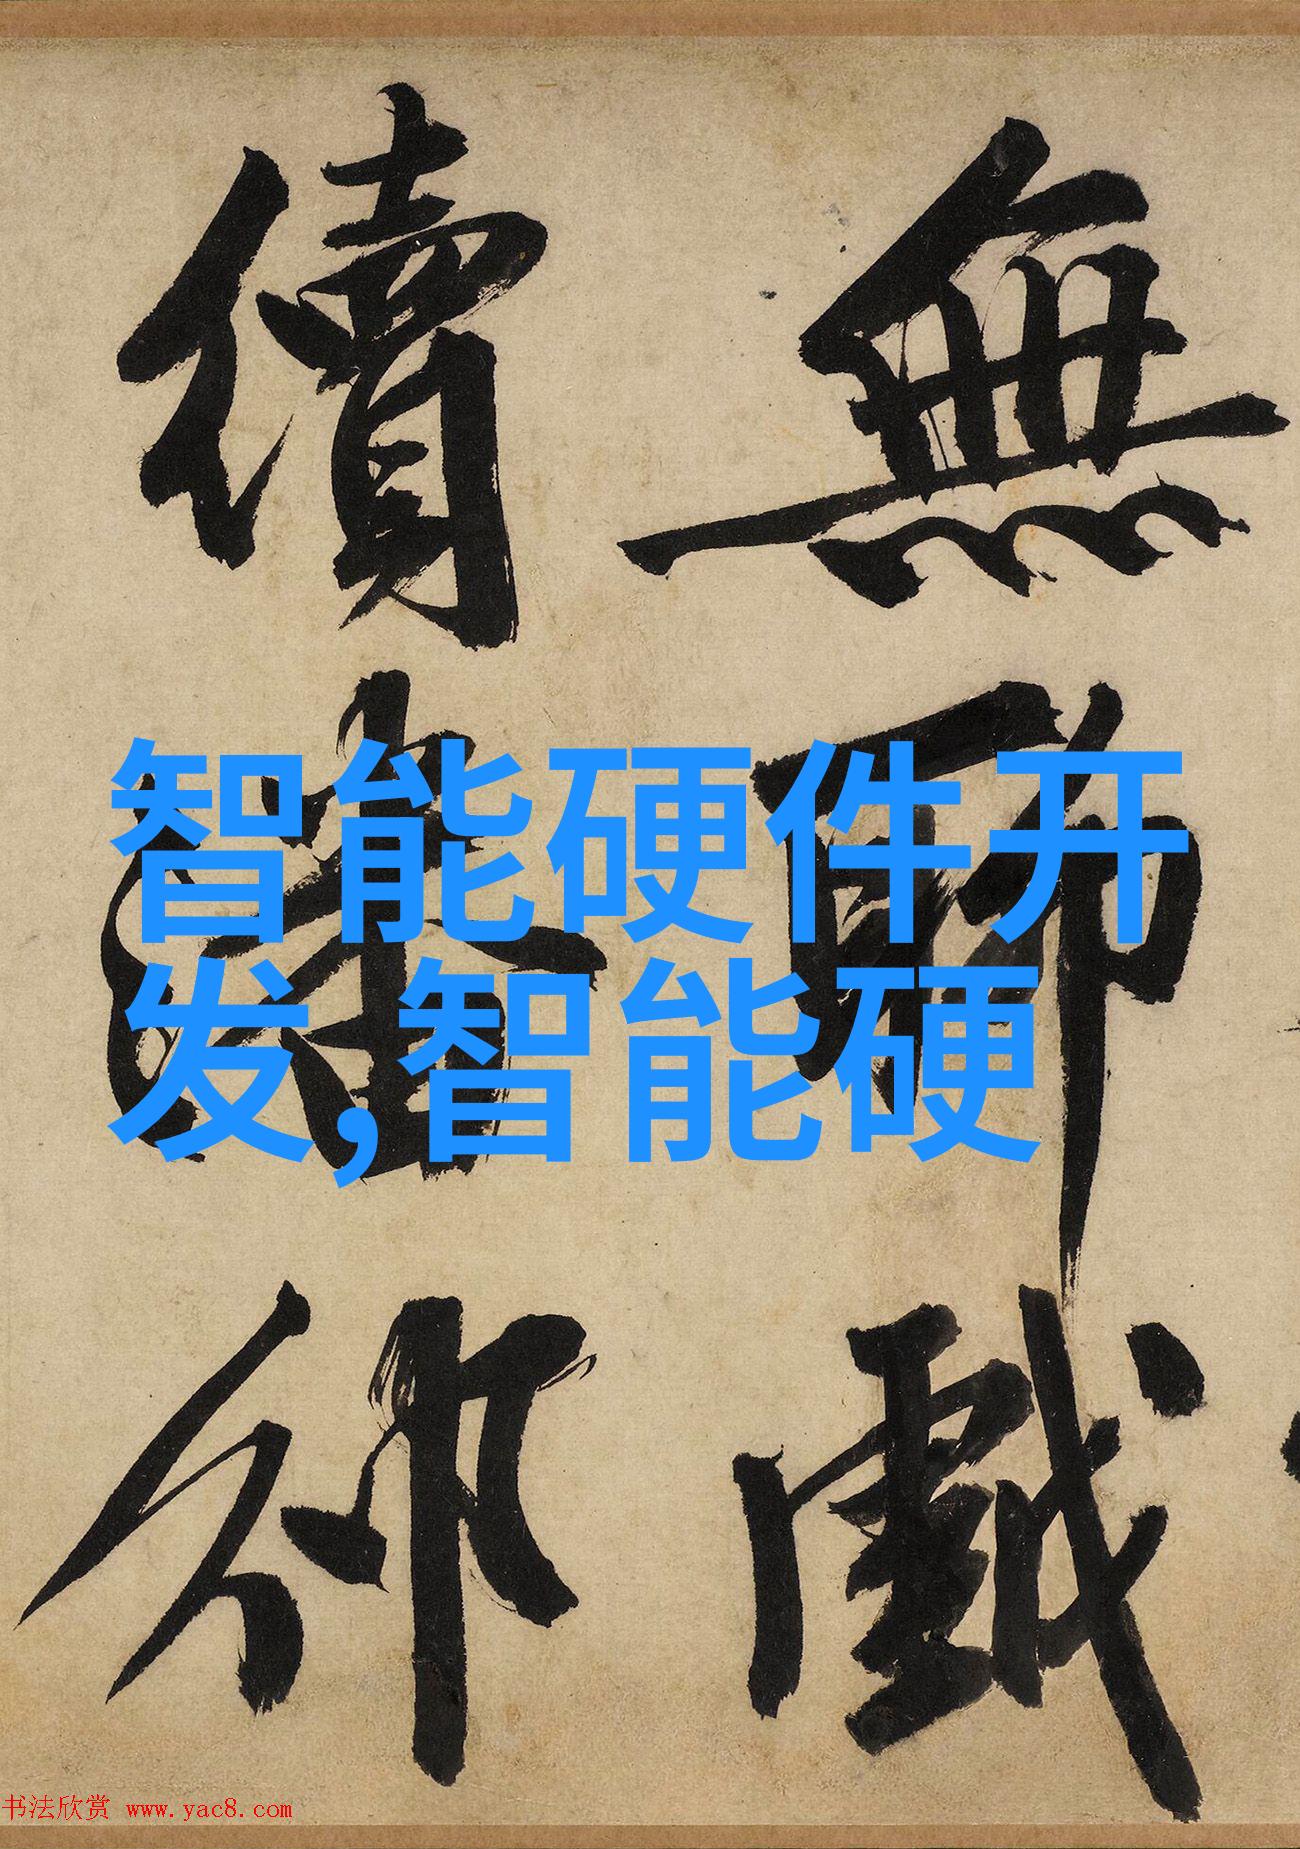 無聊戲
續潘邠
智能硬件开
发,智能硬
书法欣赏 www.yac8.com